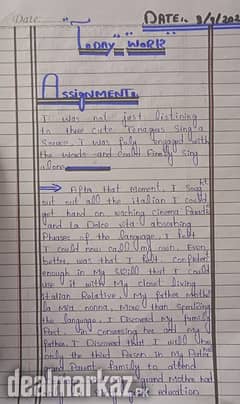 Date:
DATE:. 8/9/202
TODAY WORK
ASSIGNMENT:
I was not just listining
to these cute Tenagas Sing a
I was fuly engaged with
the words and could Finely Sing
alone
After that moment, I Soug ht
out out all the italian I could
get hand on waching cinema Paradi
and La Dolce vita absorbing
Phases of the language. I felt
I could now call my own. Even
better, was that I felt confident
enough in My Skill that I could
use it with My closet living
italian Relative, My father Mothe
la Mia nonna, More than
the language. I Discoved My family
Past. in conversing her and My
father. I Discoved that I will
only the third Person in My Father
Parent family to attend
and Mother had
education
dealmarkaz.pk